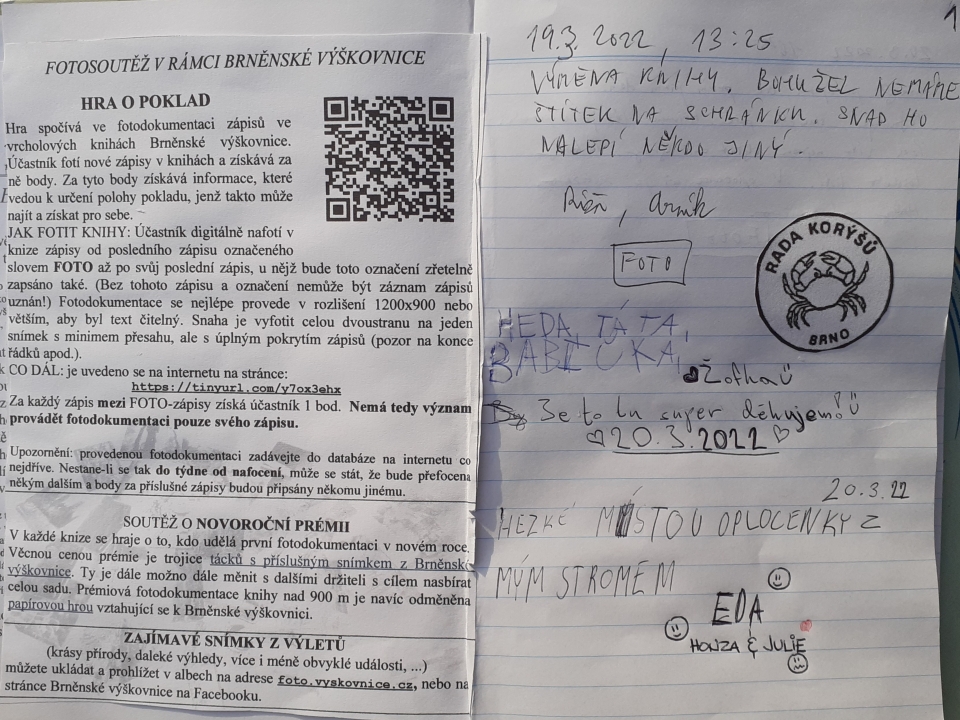 FOTOSOUTĚŽ V RÁMCI BRNĚNSKÉ VÝŠKOVNICE
HRA O POKLAD
Hra spočívá ve fotodokumentaci zápisů ve
vrcholových knihách Brněnské výškovnice.
Účastník fotí nové zápisy v knihách a získává za
ně body. Za tyto body získává informace, které
vedou k určení polohy pokladu, jenž takto může
najít a získat pro sebe.
JAK FOTIT KNIHY: Účastník digitálně nafotí v
knize zápisy od posledního zápisu označeného
slovem FOTO až po svůj poslední zápis, u nějž bude toto označení zřetelně
zapsáno také. (Bez tohoto zápisu a označení nemůže být záznam zápisů
uznán!) Fotodokumentace se nejlépe provede v rozlišení 1200x900 nebo
větším, aby byl text čitelný. Snaha je vyfotit celou dvoustranu na jeden
snímek s minimem přesahu, ale s úplným pokrytím zápisů (pozor na konce
řádků apod.).
CO DÁL: je uvedeno se na internetu na stránce:
https://tinyurl.com/y7ox3ehx
Za každý zápis mezi FOTO-zápisy získá účastník 1 bod. Nemá tedy význam
provádět fotodokumentaci pouze svého zápisu.
Upozornění: provedenou fotodokumentaci zadávejte do databáze na internetu co
nejdříve. Nestane-li se tak do týdne od nafocení, může se stát, že bude přefocena
někým dalším a body za příslušné zápisy budou připsány někomu jinému.
SOUTĚŽ O NOVOROČNÍ PRÉMII
V každé knize se hraje o to, kdo udělá první fotodokumentaci v novém roce.
Věcnou cenou prémie je trojice tácků s příslušným snímkem z Brněnské
výškovnice. Ty je dále možno dále měnit s dalšími držiteli s cílem nasbírat
celou sadu. Prémiová fotodokumentace knihy nad 900 m je navíc odměněna
papírovou hrou vztahující se k Brněnské výškovnici.
ZAJÍMAVÉ SNÍMKY Z VÝLETŮ
(krásy přírody, daleké výhledy, více i méně obvyklé události, ...)
můžete ukládat a prohlížet v albech na adrese foto.vyskovnice.cz, nebo na
stránce Brněnské výškovnice na Facebooku.
1
19.3. 2022, 13:25
VÝMĚNA KNIHY. BOHUŽEL NEMÁME
ŠTÍTEK NA SCHRÁNKU. SNAD HO
NALEPÍ NĚKDO JINÝ.
FOTO
RADA KORÝŠŮ
BRNO
HEDA, TÁTA,
BABIČKA,
Žofka
Je to tu super děkujem!
20.3.2022
20.3.22
HEZKÉ MÍSTO U OPLOCENKY Z
MÝM STROMEM
EDA
HONZA & JULIE